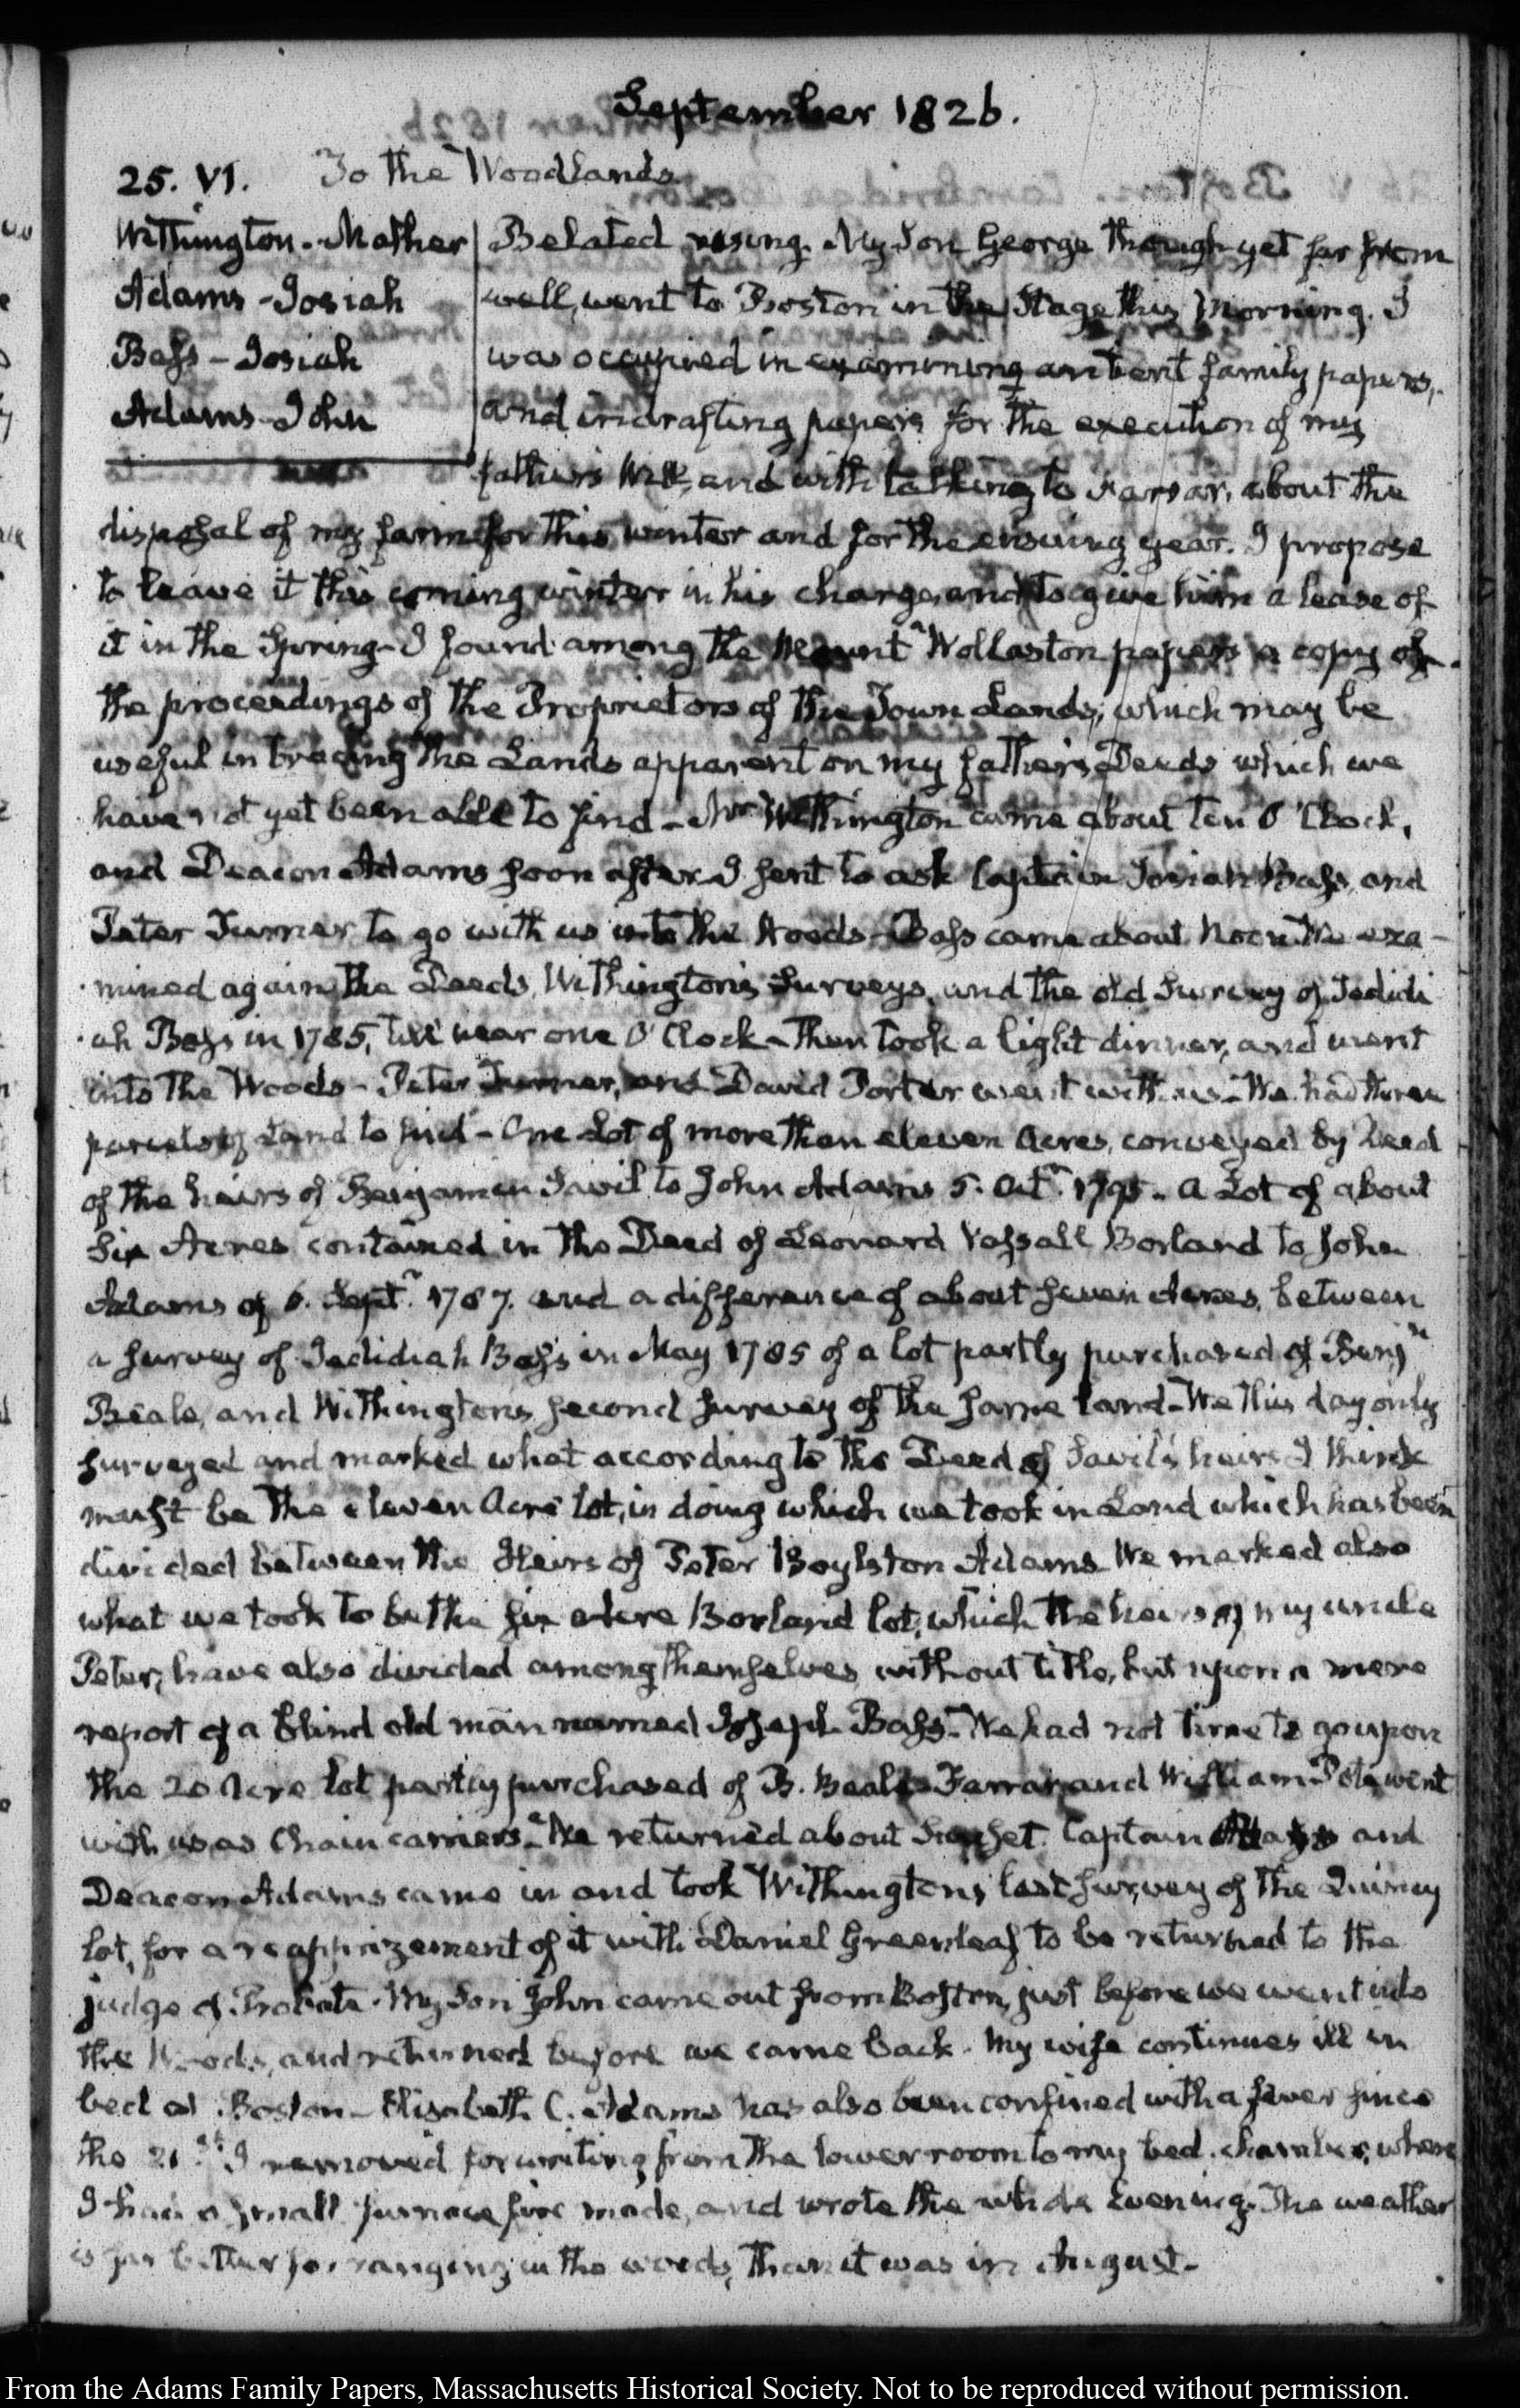 September 1826.
25. VI. To the Woodlands
Withington - Mather
Adams - Josiah
Bass - Josiah
Adams - John
Belated rising. My Son George though yet far from
well, went to Boston in the Stage this Morning. I
was occupied in examining antient family papers,
and in drafting papers for the execution of my
father's Will, and with talking to Farrar, about the
disposal of my farm for this winter and for the ensuing year. I propose
to leave it this coming winter in his charge, and to give him a lease of
it in the Spring - I found among the Mount Wollaston papers a copy of
the proceedings of the Proprietors of the Town Lands, which may be
useful in tracing the Lands apparent on my father's Deeds which we
have not yet been able to find - Mr Withington came about ten O'Clock,
and Deacon Adams soon after. I sent to ask Captain Josiah Bass, and
Peter Turner to go with us into the Woods - Bass came about Noon. We exa-
mined again the Deeds, Withington's Surveys, and the old Survey of Jedidi
ah Bass in 1785, till near one O'Clock - Then took a light dinner, and went
into the Woods - Peter Turner, and David Porter went with us - We had three
parcels of Land to find - One Lot of more than eleven Acres, conveyed by Deed
of the heirs of Benjamin Savil to John Adams 5. Octr. 1795 - A Lot of about
Six Acres contained in the Deed of Leonard Vassall Borland to John
Adams of 6. Septr. 1787. and a difference of about seven Acres, between
a survey of Jedidiah Bass in May 1785 of a lot partly purchased of Benjn
Beale, and Withingtons second survey of the same land - We this day only
surveyed and marked what according to the Deed of Savil's heirs I think
must be the eleven Acre lot, in doing which we took in Land which has been
divided between the Heirs of Peter Boylston Adams. We marked also
what we took to be the six Acre Borland lot, which the heirs of my uncle
Peter, have also divided among themselves, without title, but upon a mere
report of a blind old man named Joseph Bass - We had not time to go upon
the 20 Acre lot partly purchased of B. Beale - Farrar and William Pote went
with us as Chain carriers - We returned about Sunset. Captain Bass and
Deacon Adams came in and took Withingtons last survey of the Quincy
lot, for a reapprizement of it with Daniel Greenleaf to be returned to the
judge of Probate. My Son John came out from Boston, just before we went into
the Woods, and returned before we came back. My wife continues ill in
bed at Boston - Elizabeth C. Adams has also been confined with a fever since
the 21st. I removed for writing from the lower room to my bed-chamber, where
I had a small furnace fire made, and wrote the whole Evening. The weather
is far better for ranging in the woods, than it was in August -
From the Adams Family Papers, Massachusetts Historical Society. Not to be reproduced without permission.